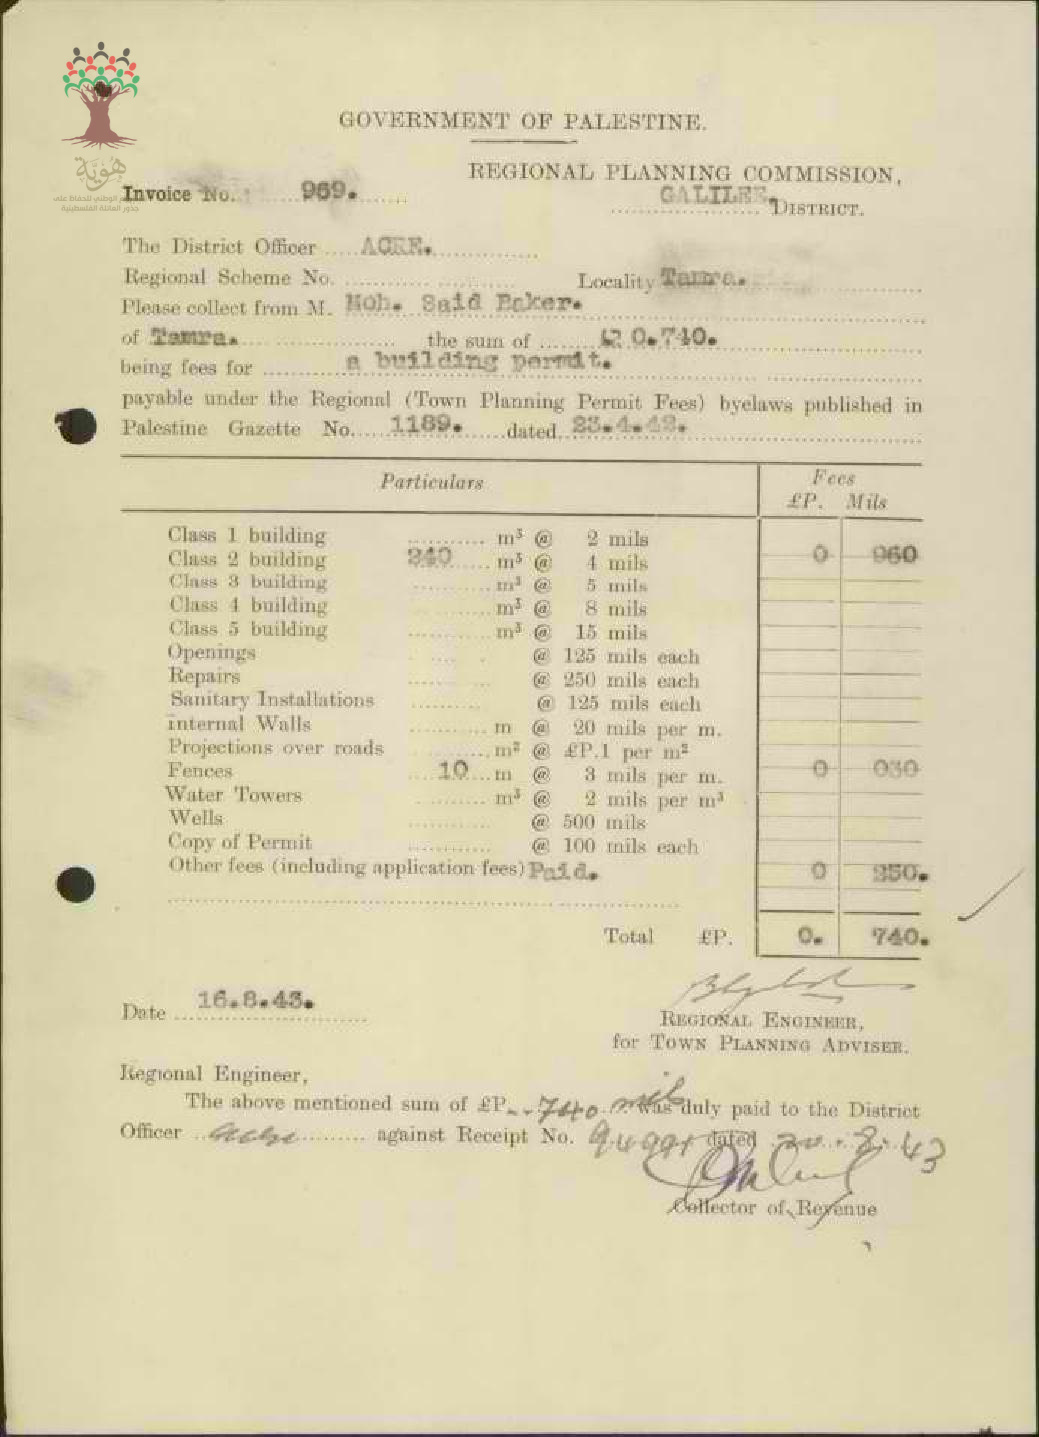 هُويّة
GOVERNMENT OF PALESTINE.
REGIONAL PLANNING COMMISSION,
Invoice No. 969. GALILEE. DISTRICT.
The District Officer ACRE.
Regional Scheme No. Locality Tamra.
Please collect from M. Moh. Said Baker.
of Tamra. the sum of LP 0.740.
being fees for a building permit.
payable under the Regional (Town Planning Permit Fees) byelaws published in
Palestine Gazette No. 1189. dated 23.4.42.
Particulars Fees
£P. Mils
Class 1 building m³ @ 2 mils
Class 2 building 240 m³ @ 4 mils 0 960
Class 3 building m³ @ 5 mils
Class 4 building m³ @ 8 mils
Class 5 building m³ @ 15 mils
Openings @ 125 mils each
Repairs @ 250 mils each
Sanitary Installations @ 125 mils each
Internal Walls m @ 20 mils per m.
Projections over roads m² @ £P.1 per m²
Fences 10 m @ 3 mils per m. 0 030
Water Towers m³ @ 2 mils per m³
Wells @ 500 mils
Copy of Permit @ 100 mils each
Other fees (including application fees) Paid. 0 250.
Total £P. 0. 740.
Date 16.8.43.
REGIONAL ENGINEER,
for TOWN PLANNING ADVISER.
Regional Engineer,
The above mentioned sum of £P. 740 mils was duly paid to the District
Officer Acre against Receipt No. dated 20.8.43
Collector of Revenue